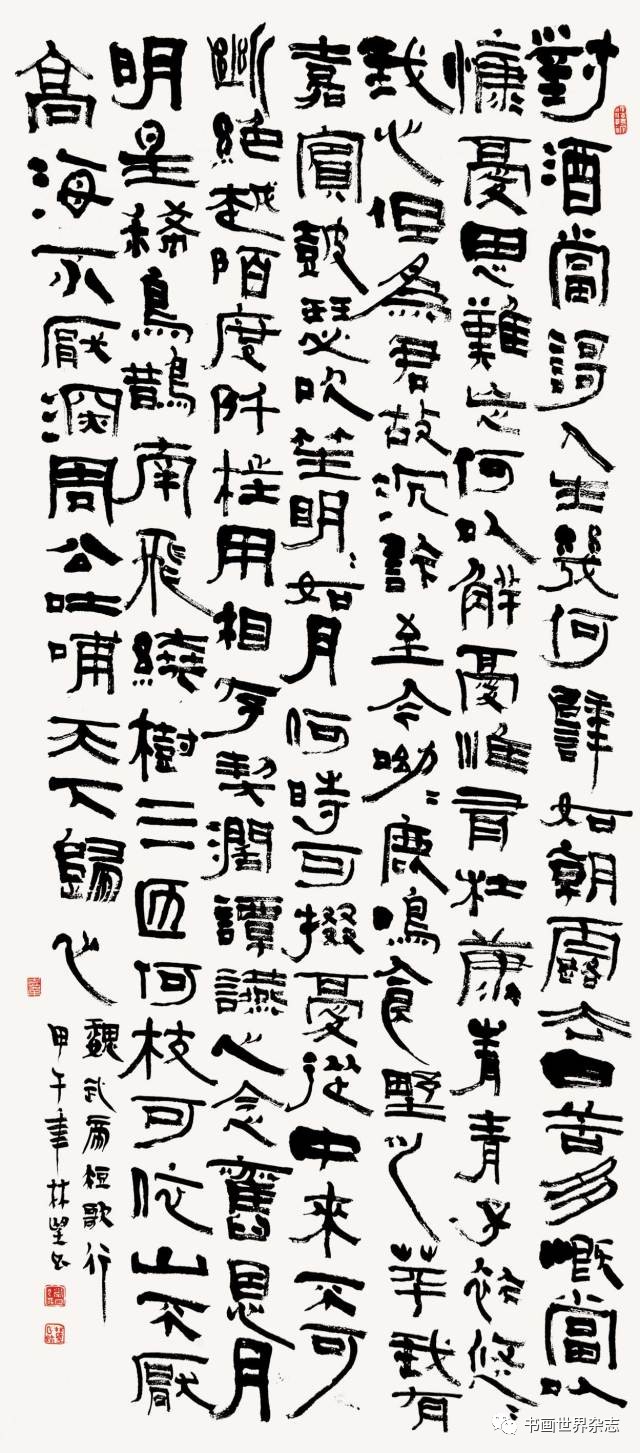 對酒當謌人生幾何譬如朝露去日苦多慨當以
慷憂思難忘何以解憂惟有杜康青青子衿悠〻
我心但為君故沉訡至今呦〻鹿鳴食野之苹我有
嘉賓鼓瑟吹笙明〻如月何時可掇憂從中來不可
斷絕越陌度阡枉用相存契闊譚讌心念舊恩月
明星稀烏鵲南飛繞樹三匝何枝可依山不厭
高海不厭深周公吐哺天下歸心
魏武帝短歌行
甲午年林望书
书画世界杂志